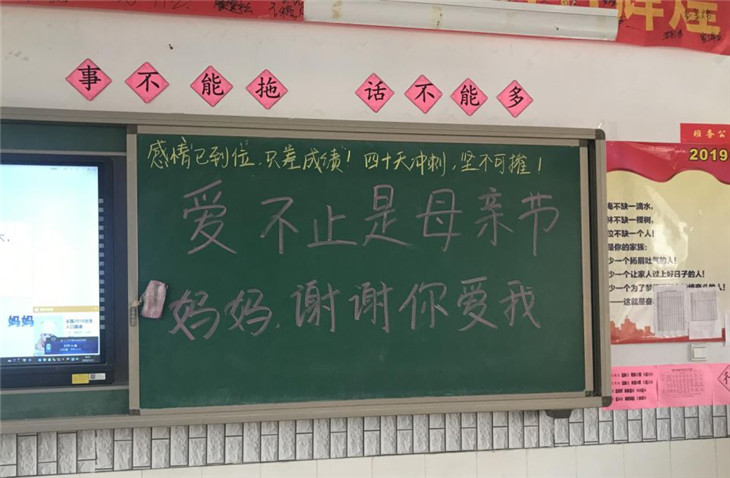 事不能拖 话不能多
感情已到位,只差成绩!四十天冲刺,坚不可摧!
爱不止是母亲节
妈妈,谢谢你爱我
妈妈
班务公
2019
缺一滴水,
林不缺一棵树,
位不缺一个人!
是你的家族:
少一个扬眉吐气的人!
少一个让家人过上好日子的人!
这就是奋